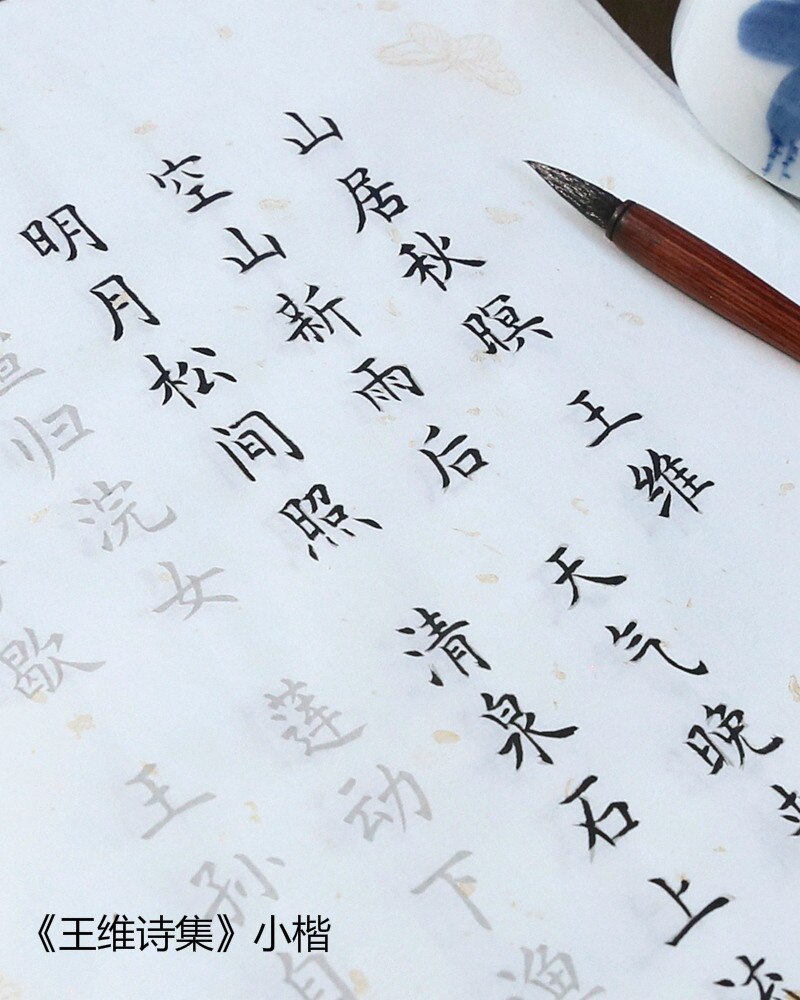 山居秋暝 王维
空山新雨后 天气晚
明月松间照 清泉石上
归浣女 莲动下渔
歇 王孙自
《王维诗集》小楷